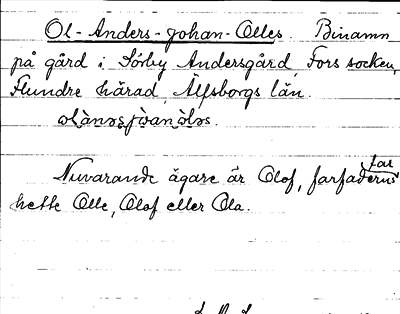 Ol-Anders-Johan-Olles. Binamn
på gård i Sörby Andersgård, Fors socken,
Flundre härad, Älfsborgs län.
far
Nuvarande ägare är Olof, farfaderns
hette Olle, Olof eller Ola.